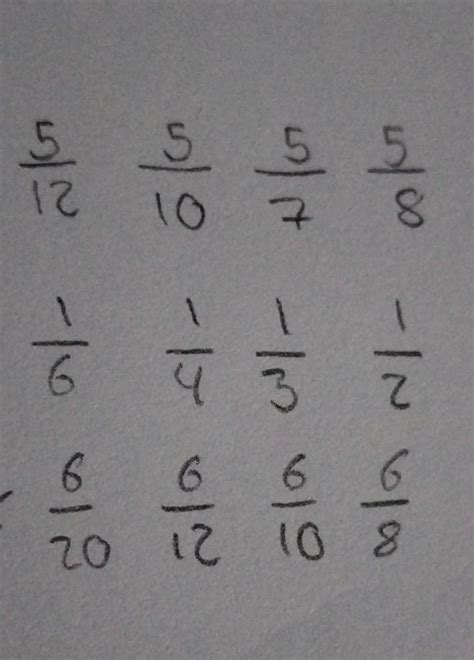 5/12 5/10 5/7 5/8
1/6 1/4 1/3 1/2
6/20 6/12 6/10 6/8